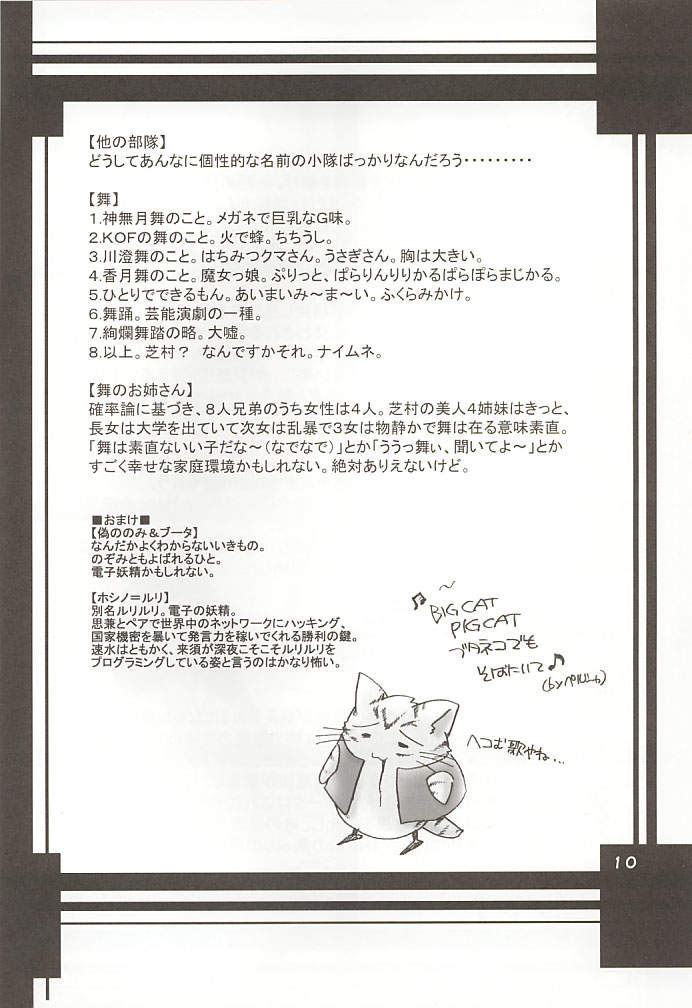 【他の部隊】
どうしてあんなに個性的な名前の小隊ばっかりなんだろう・・・・・・・・・
【舞】
1.神無月舞のこと。メガネで巨乳なG味。
2.KOFの舞のこと。火で蜂。ちちうし。
3.川澄舞のこと。はちみつクマさん。うさぎさん。胸は大きい。
4.香月舞のこと。魔女っ娘。ぷりっと、ぱらりんりりかるぱらぽらまじかる。
5.ひとりでできるもん。あいまいみ～ま～い。ふくらみかけ。
6.舞踊。芸能演劇の一種。
7.絢爛舞踏の略。大嘘。
8.以上。芝村？　なんですかそれ。ナイムネ。
【舞のお姉さん】
確率論に基づき、8人兄弟のうち女性は4人。芝村の美人4姉妹はきっと、
長女は大学を出ていて次女は乱暴で3女は物静かで舞は在る意味素直。
「舞は素直ないい子だな～（なでなで）」とか「ううっ舞ぃ、聞いてよ～」とか
すごく幸せな家庭環境かもしれない。絶対ありえないけど。
■おまけ■
【偽ののみ＆ブータ】
なんだかよくわからないいきもの。
のぞみともよばれるひと。
電子妖精かもしれない。
【ホシノ＝ルリ】
別名ルリルリ。電子の妖精。
思兼とペアで世界中のネットワークにハッキング、
国家機密を暴いて発言力を稼いでくれる勝利の鍵。
速水はともかく、来須が深夜こそこそルリルリを
プログラミングしている姿と言うのはかなり怖い。
♪～
BIG CAT
PIG CAT
ブタネコでも
そばにいて♪
ヘコむ歌やね…
10